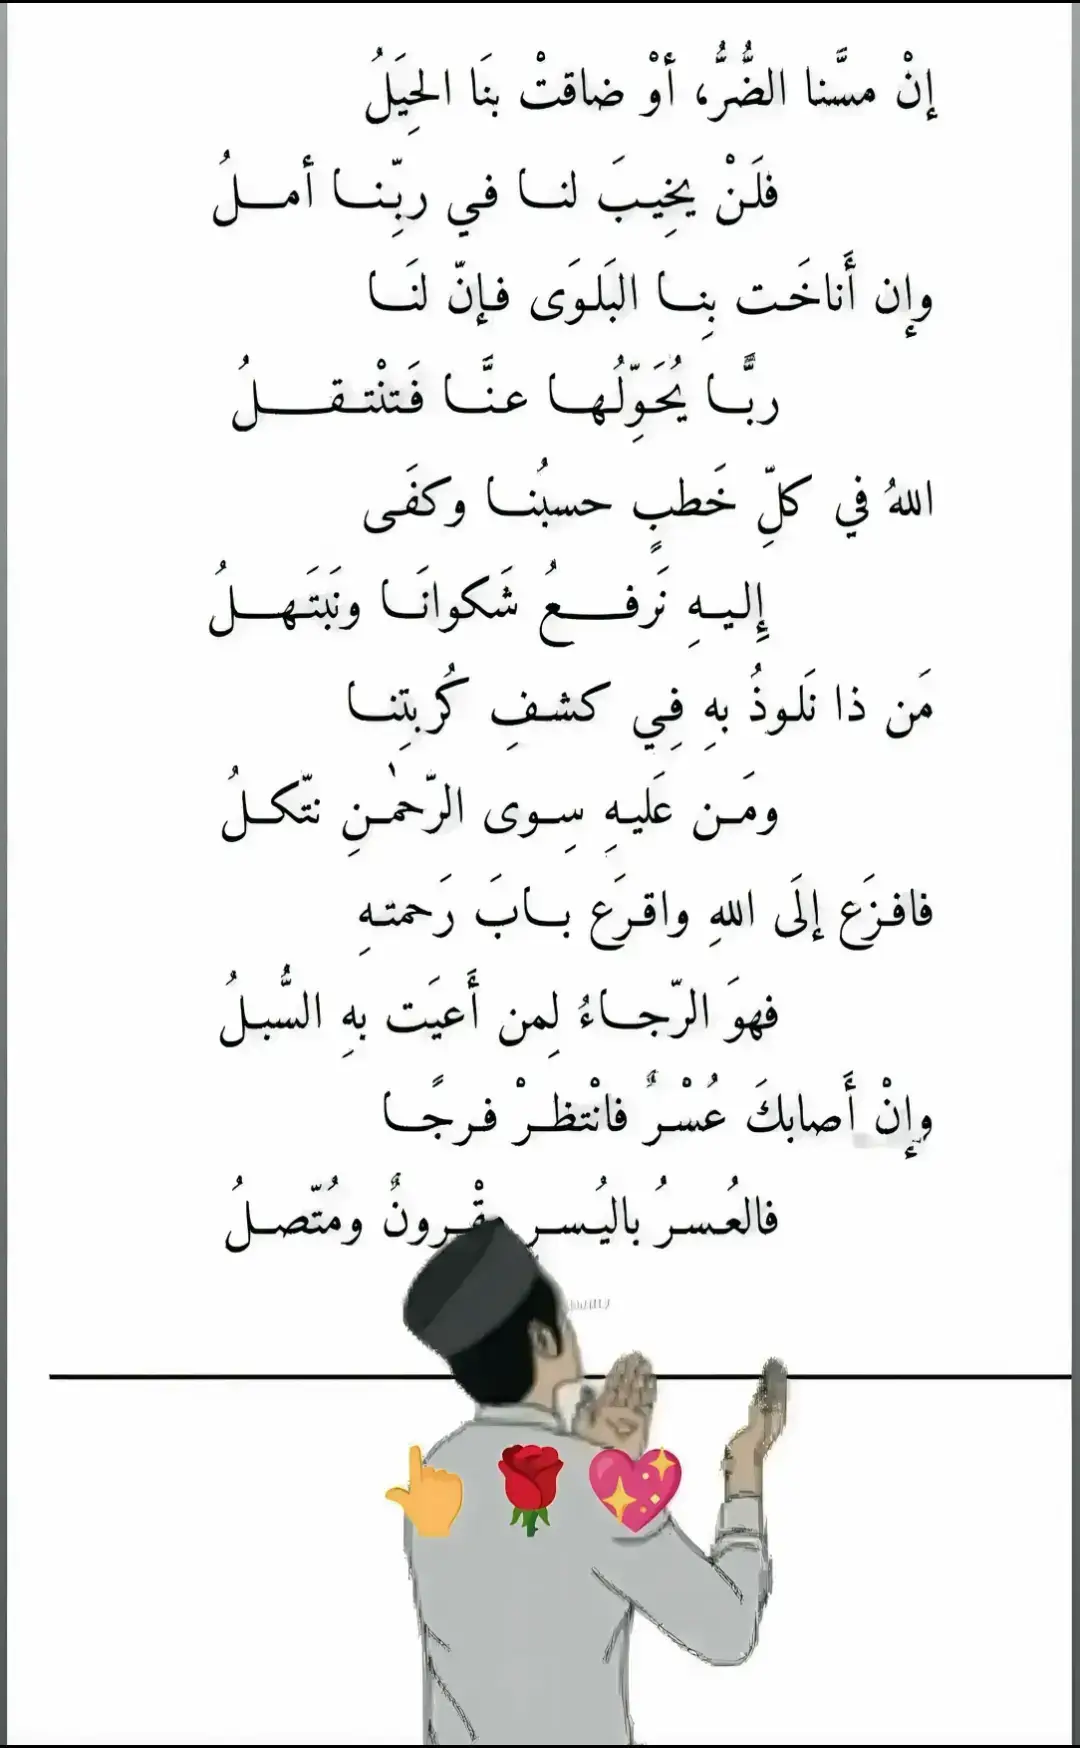 إنْ مسَّنا الضُّرُّ، أوْ ضاقتْ بنَا الحِيَلُ
فلَنْ يخِيبَ لنا في ربِّنا أملُ
وإِن أَناخَت بِنا البَلوَى فإنّ لنَا
ربًّا يُحَوِّلُها عنَّا فَتنْتقلُ
اللهُ في كلِّ خَطبٍ حسبُنا وكفَى
إِليهِ نَرفعُ شَكوانَا ونَبَتَهلُ
مَن ذا نَلوذُ بهِ فِي كشفِ كُربتِنا
ومَن عَليهِ سِوى الرّحمٰنِ نتّكلُ
فافزَع إلَى اللهِ واقرَع بابَ رَحمتهِ
فهوَ الرّجاءُ لِمن أَعيَت بهِ السُّبلُ
وإِنْ أَصابكَ عُسْرٌ فانْتظرْ فرجًا
فالعُسرُ باليُسر مقْرونٌ ومُتّصلُ